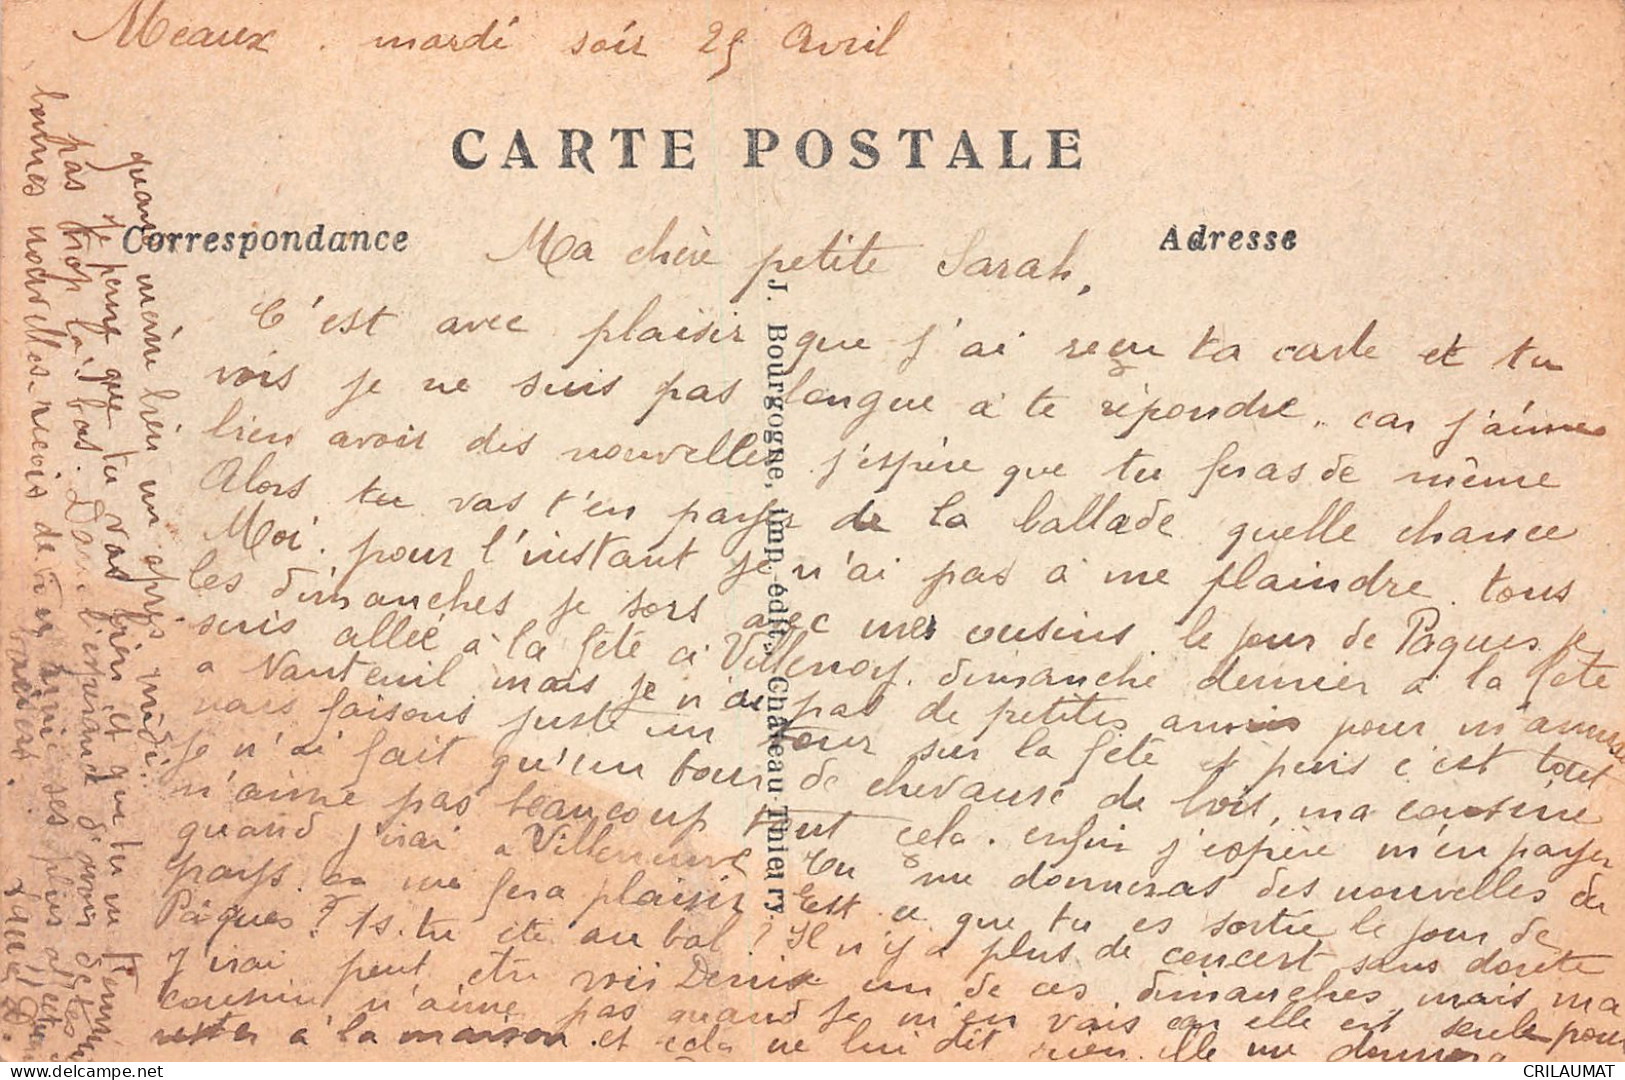 Meaux. mardi soir 25 Avril
CARTE POSTALE
Correspondance
Adresse
Ma chère petite Sarah,
C'est avec plaisir que j'ai reçu ta carte et tu
vois je ne suis pas longue à te répondre, car j'aime
bien avoir des nouvelles, j'espère que tu feras de même
Alors tu vas t'en payer de la ballade quelle chance
Moi, pour l'instant je n'ai pas à me plaindre, tous
les dimanches je sors avec mes cousins. le jour de Pâques je
suis allée à la fête à Villenoy, dimanche dernier à la fête
a Nanteuil mais je n'ai pas de petites amies pour m'amuser
nous faisons juste un tour sur la fête et puis c'est tout
Je n'ai fait qu'un tour de chevaux de bois, ma cousine
n'aime pas beaucoup tout cela. enfin j'espère m'en payer
quand j'irai a Villeneuve. Tu me donneras des nouvelles du
pays. ca me fera plaisir. Est ce que tu es sortie le jour de
Pâques? As-tu été au bal? Il n'y a plus de concert sans doute
J'irai peut être voir Denise un de ces dimanches, mais ma
cousine n'aime pas quand je m'en vais car elle est seule pour
rester à la maison. et cela ne lui dit rien. elle me donnera
quand même bien un après midi.
Je pense que tu vas bien et que tu ne t'ennuies
pas trop là-bas. Dans l'espérance d'avoir de tes
bonnes nouvelles. reçois de ton amie ses plus affectueux
baisers.
J. Bourgogne, imp. édit., Château-Thierry.
CRILAUMAT